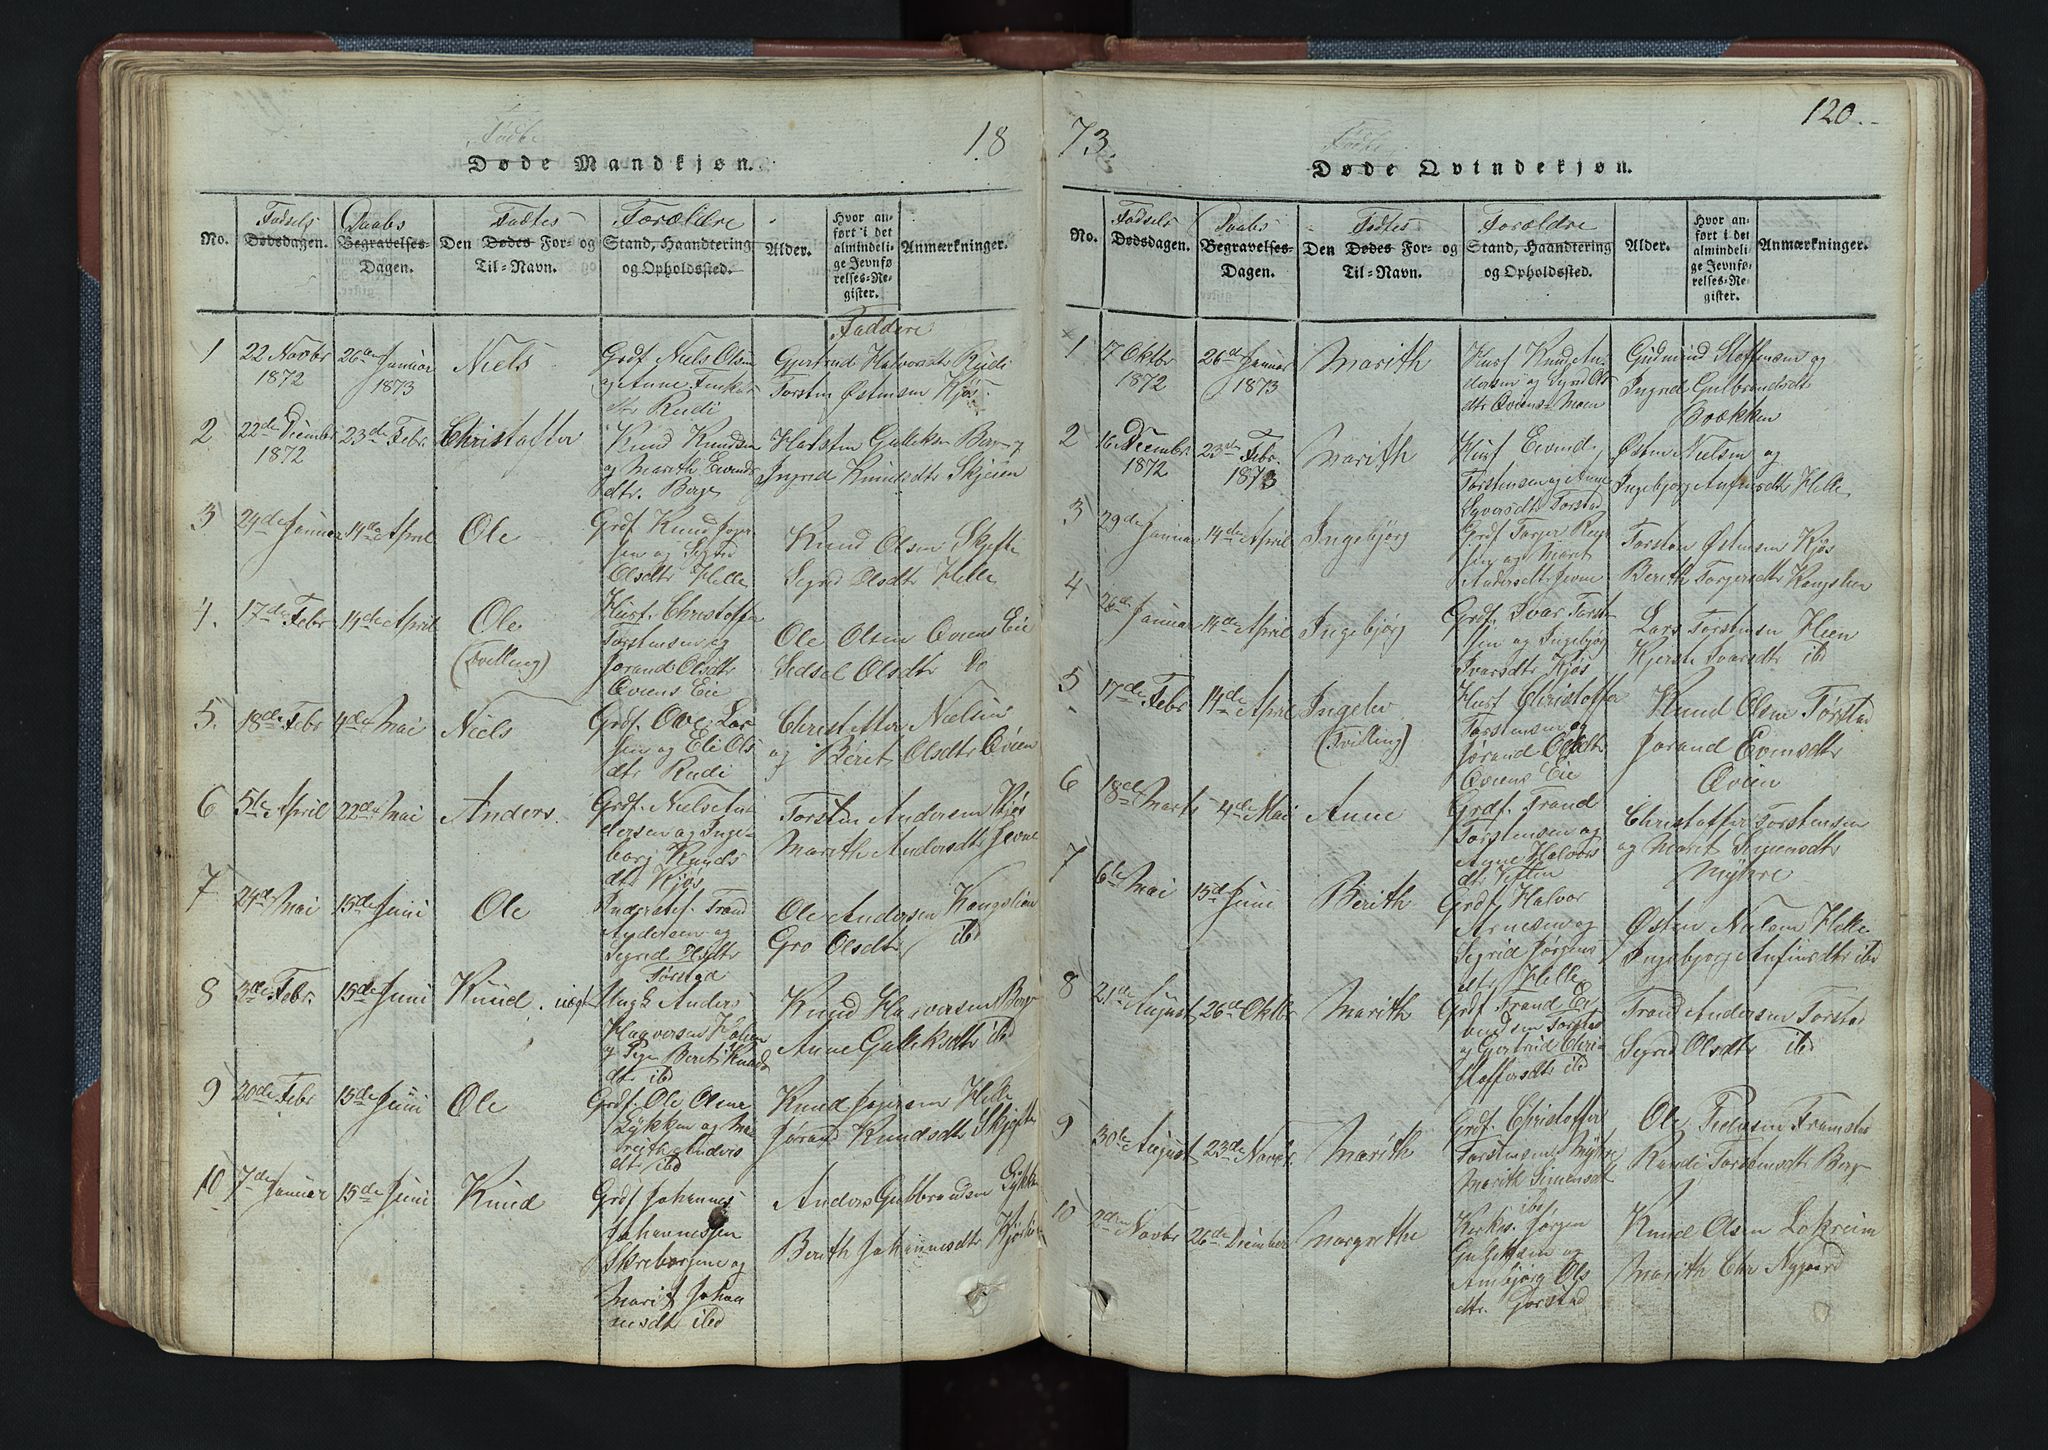 18
Fødte
Døde Mandkjøn.
No.
Fødsels
Dødsdagen.
Daabs
Begravelses-
Dagen.
Fødtes
Den Dødes For- og
Til-Navn.
Forældre
Stand, Haandtering
og Opholdssted.
Alder.
Hvor an-
ført i det
almindeli-
ge Jevnfø-
relses-Re-
gister.
Anmærkninger.
Faddere
1
22 Novbr
1872
26de Januar
1873
Niels
Grdf. Niels Olsen
og Anne
dtr Rudi
Gjertrud Halvorsdtr Rudi
Torsten Østensen Kjøs
2
22de Decmbr
1872
23de Febr
Christoffer
Knud Knudsen
og Marith Eivinds
dtr. Berge
Halsten Gulleksen Berg og
Ingrid Knudsdtr Skjeien
3
24de Januar
14de April
Ole
Grdf. Knud
sen og Sigrid
Olsdtr Helle
Knud Olsen Skjefte
Sigrid Olsdtr Helle
4.
17de Febr
14de April
Ole
(Tvilling)
Husf. Christoffer
Torstensen og
Jorand Olsdtr
Qviens Eie
Ole Olsen Qviens Eie
Sidsel Olsdtr Do
5.
18de Febr
4de Mai
Niels
Grdf. Ove Lar-
sen og Eli Ols
dtr Rudi
Christoffer Nielsen
og Beret Olsdtr Qvien
6
5te April
22de Mai
Anders
Grdf. Niels An-
dersen og Inge-
borg Knuds
dtr Kjøs
Torstin Andersen Kjøs
Marith Andersdtr Jevne
7
24de Mai
15de Juni
Ole
Inderstf. Trond
Andersen og
Sigrid
Torstad
Ole Andersen Kongslien
Gro Olsdtr ibd
8
3de Febr.
15de Juni
Knud. uægte
Ungk. Anders
Halvorsen
og Pige Berit Knuds
dtr ibd
Knud Halvorsen Berg
Anne Gulleksdtr ibd
9
20de Febr
15de Juni
Ole
Grdf. Ole Olsen
Lykken og Ma-
rith Anders
dtr ibd
Knud Helle
Jorand Knudsdtr Skjefte
10
7de Januar
15de Juni
Knud
Grdf Johannes
Johannessen
Skrebergene og
Marit Johan
nesdtr ibd
Anders Gulbrandsen Lykken
Berith Johannesdtr
73.
120.
Fødte
Døde Qvindekjøn.
No.
Fødsels
Dødsdagen.
Daabs
Begravelses-
Dagen.
Fødtes
Den Dødes For- og
Til-Navn.
Forældre
Stand, Haandtering
og Opholdssted.
Alder.
Hvor an-
ført i det
almindeli-
ge Jevnfø-
relses-Re-
gister.
Anmærkninger.
1
7 Oktbr
1872
26de Januar
1873
Marith
Husf Knud An-
dersen og Sigrid Ols
dtr Qviens-Moen
Gudmund Stoffersen og
Ingrid Gulbrandsdtr
Bækken
2
16 Decembr
1872
23de Febr.
1873
Marith
Husf Eivind
Torstensen og Anne
Syversdtr Torstad
Østen Nielsen og
Ingebjørg Anfinsdtr Helle
3
29de Januar
14de April
Ingebjørg
Grdf Torger
sen og Marit
Andersdtr Jevne
Torsten Østensen Kjøs
Berith Torgersdtr Kongslien
4
26de Januar
14de April
Ingebjørg
Grdf. Ivar Torst-
sen og Ingebjør
Ivarsdtr Kjøs
Lars Torstensen Hien
Kjersti Ivarsdtr ibd
5
17de Febr
14de April
Ingelev
(Tvilling)
Husf Christoffer
Torstensen og
Jørand Olsdtr
Qviens Eie
Knud Olsen Torstad
Jorand Evensdtr
Qvien
6
18de Marts
4de Mai
Anne
Grdf. Trond
Torstensen og
Anne Halvors
dtr Heften
Christoffer Torstensen
og Marit Simensdtr
Myhre
7
6te Mai
15de Juni
Berith
Grdf Halvor
Arnesen og
Sigrid Jørgens
dtr. Helle
Østen Nielsen Helle
Ingebjørg Anfinsdtr ibd
8
21de August
26de Oktbr
Marith
Grdf Trond Ei-
vindsen Torstad
og Gjertrud Chri-
stoffersdtr ibd
Trond Andersen Torstad
Sigrid Olsdtr ibd
9
30te August
23de Novbr.
Marith
Grdf. Christoffer
Torstensen Myhre
Marith Simensdtr
ibd
Ole Pedersen Framstad
Randi Torstensdtr Berg
10
2den Novbr
26de Decmber
Margrethe
Kirkes. Jørgen
Gulleksen og
Ambjørg Ols
dtr. Gorstad
Knud Olsen Løkreim
Marith Chr Nygaard